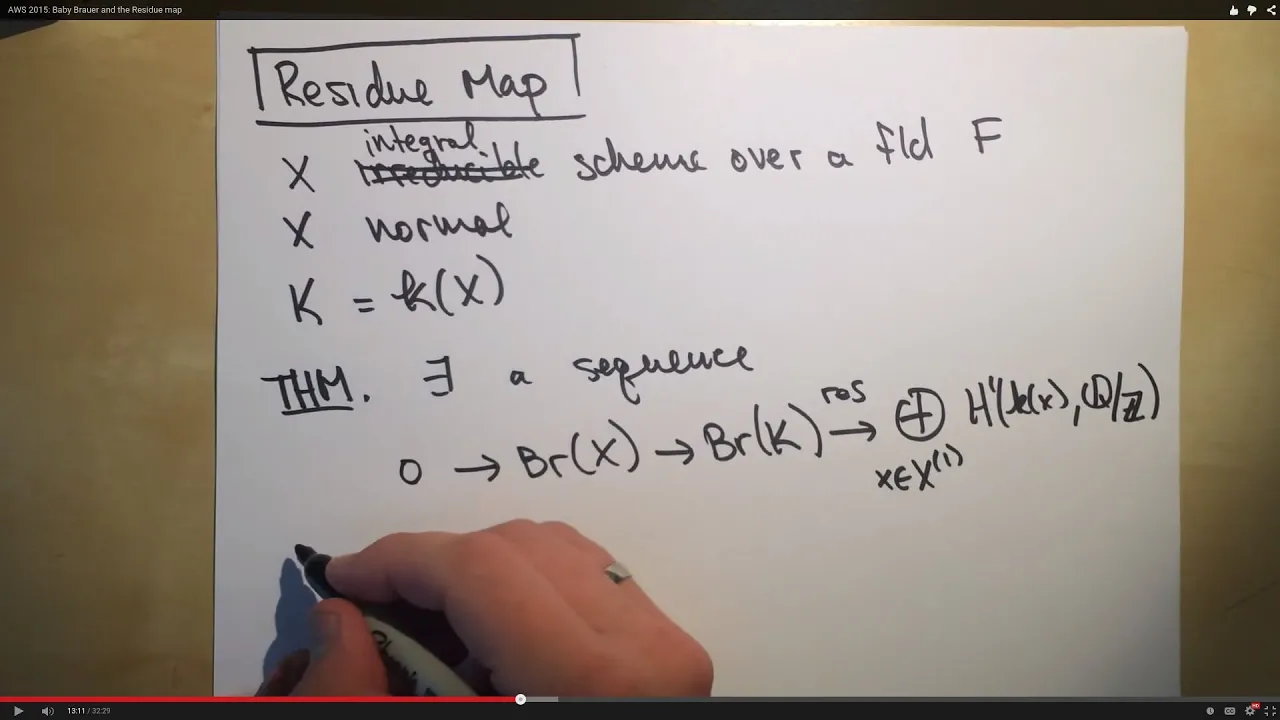 AWS 2015: Baby Brauer and the Residue map
Residue Map
integral
X irreducible scheme over a fld F
X normal
K = k(X)
THM. ∃ a sequence
0 → Br(X) → Br(K) res → ⊕ x∈X^(1) H^1(k(x), Q/Z)
13:11 / 32:29
CC
HD